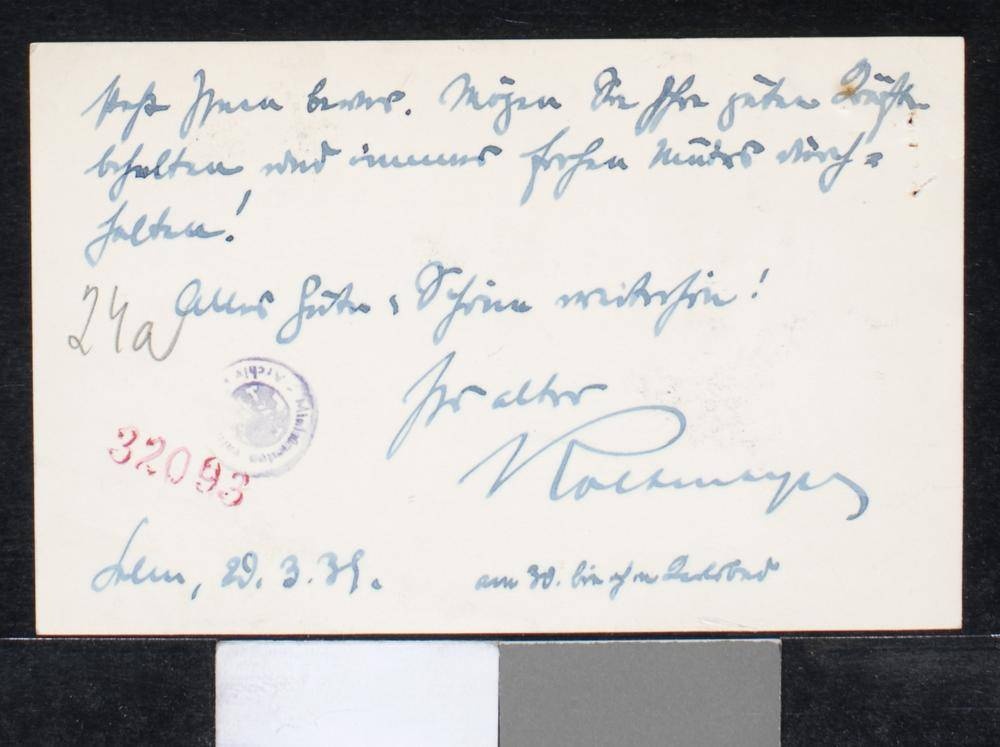 steht Ihnen bevor. Mögen Sie Ihre guten Kräfte
behalten und immer frohen Muts durch=
halten!
Alles Gute & Schöne weiterhin!
24a
Ihr alter
Archiv
32093
29. 3. 39.
am 30. bin ich in Karlsbad